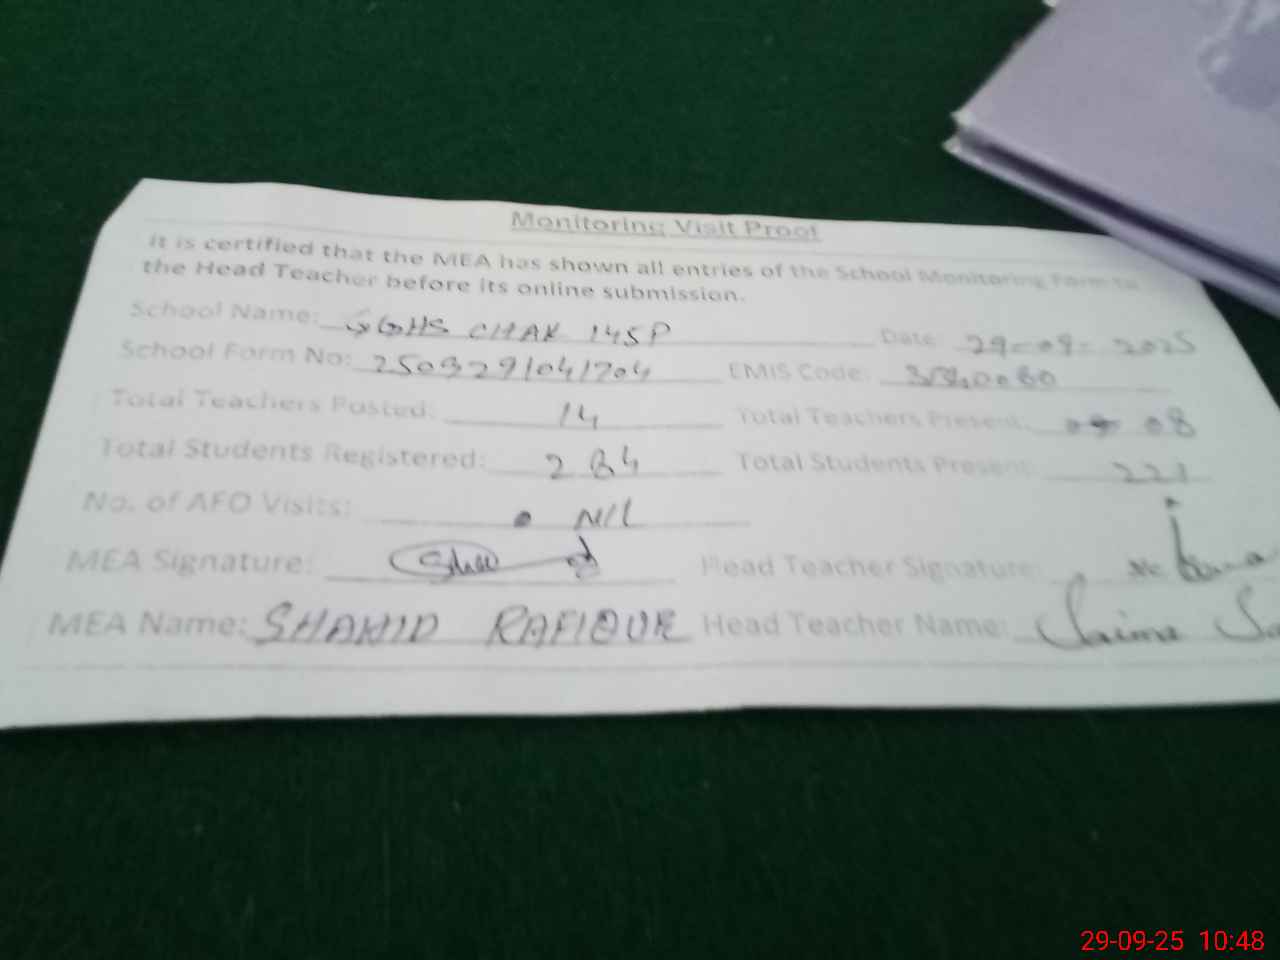 Monitoring Visit Proof
It is certified that the MEA has shown all entries of the School Monitoring Form to
the Head Teacher before its online submission.
School Name: GGHS CHAK 145P Date: 29-09-2025
School Form No: 2509291041704 EMIS Code:
Total Teachers Posted: 14 Total Teachers Present: 08
Total Students Registered: 284 Total Students Present: 221
No. of AEO Visits: NIL
MEA Signature: Head Teacher Signature:
MEA Name: SHAHID RAFIQUE Head Teacher Name: Saima
29-09-25 10:48